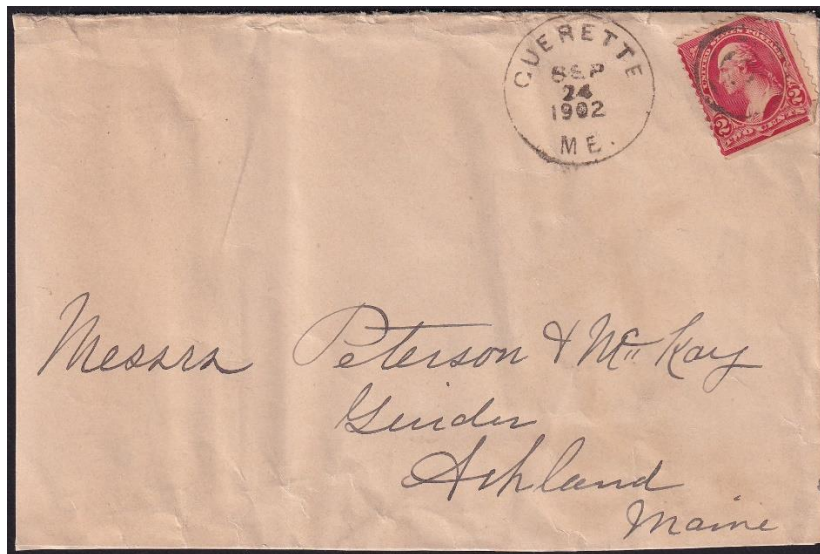 GUERETTE
SEP
24
1902
ME.
UNITED STATES POSTAGE
2 2
TWO CENTS
Messrs Peterson & Mc Kay
Ashland
Maine